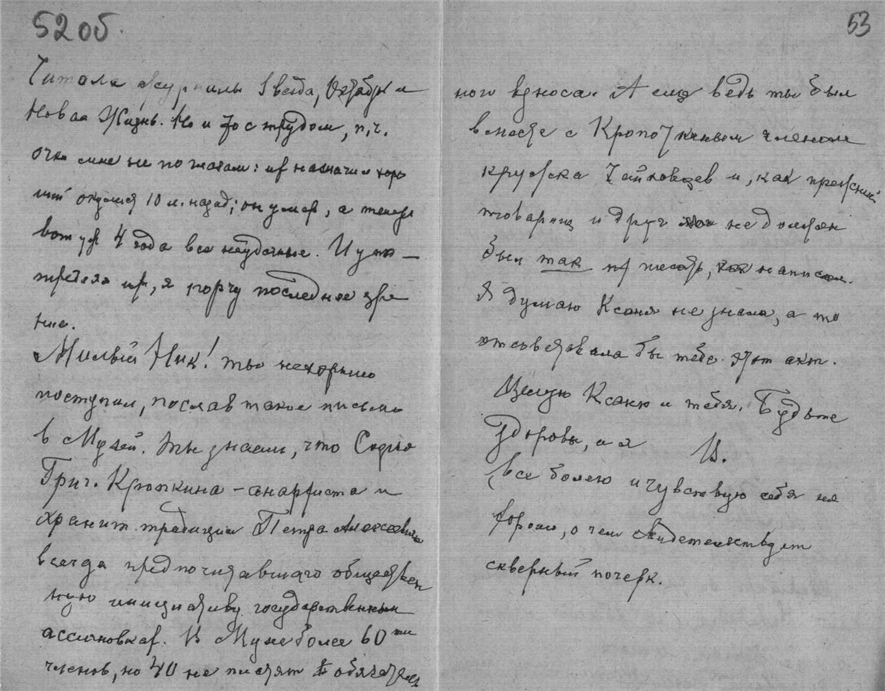 52 об.
Читала журналы Звезда, Октябрь и
Новая Жизнь. Но и то с трудом, п. ч.
очки мне не помогали: их назначил хоро
ший окулист 10 л. назад; он умер, а теперь
вот уж 4 года все неудачные. И упо-
требляя их, я порчу последнее зре
ние.
Милый Ник! ты нехорошо
поступил, послав такое письмо
в Музей. Ты знаешь, что Софья
Григ. Кропоткина - анархистка и
хранит традиции Петра Алексеевича
всегда предпочитавшего обществен
ную инициативу государственным
ассигновкам. В Музее более 60ти
членов, но 40 не платят обязатель
53
ного взноса. А еще ведь ты был
вместе с Кропоткиным членом
кружка Чайковцев и, как прежний
товарищ и друг не должен
был так писать, написал.
Я думаю Ксаня не знала, а то
отсоветовала бы тебе этот акт.
Целую Ксаню и тебя. Будьте
здоровы, а я В.
все болею и чувствую себя не
хорошо, о чем свидетельствует
скверный почерк.